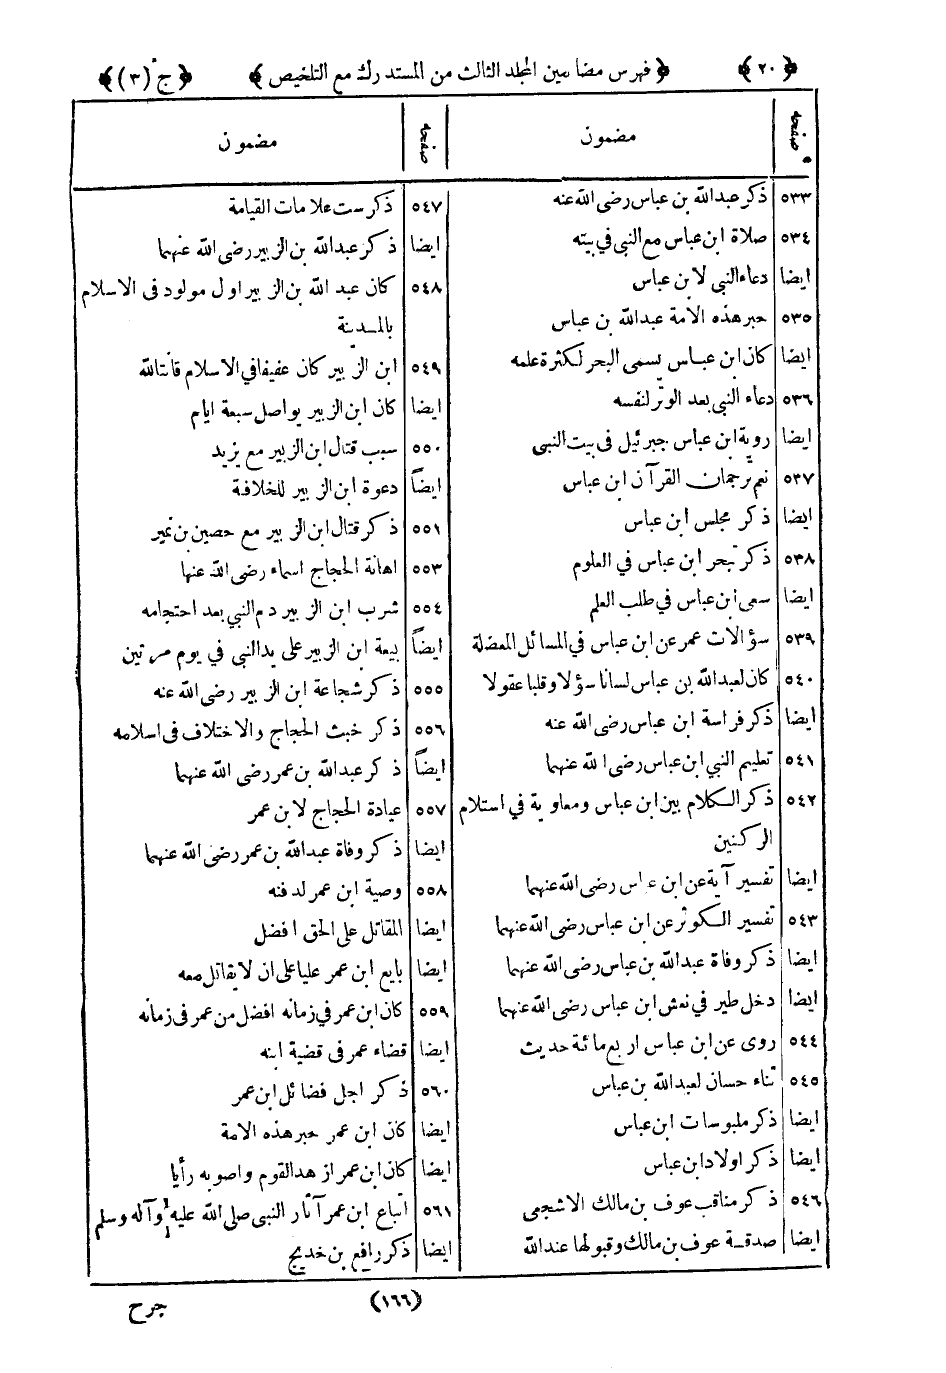 ﴿٢٠﴾ ﴿فهرس مضامين المجلد الثالث من المستدرك مع التلخيص﴾ ﴿ج (٣)﴾
صفحه مضمون
٥٣٣ ذكر عبدالله بن عباس رضى الله عنه
٥٣٤ صلاة ابن عباس مع النبي في بيته
ايضا دعاء النبي لابن عباس
٥٣٥ حبر هذه الامة عبدالله بن عباس
ايضا كان ابن عباس يسمى البحر لكثرة علمه
٥٣٦ دعاء النبي بعد الوتر لنفسه
ايضا روية ابن عباس جبرئيل فى بيت النبي
٥٣٧ نعم ترجمان القرآن ابن عباس
ايضا ذكر مجلس ابن عباس
٥٣٨ ذكر تبحر ابن عباس في العلوم
ايضا سعى ابن عباس في طلب العلم
٥٣٩ سؤالات عمر عن ابن عباس في المسائل المعضلة
٥٤٠ كان لعبدالله بن عباس لسانا سؤلا وقلبا عقولا
ايضا ذكر فراسة ابن عباس رضى الله عنه
٥٤١ تعليم النبي ابن عباس رضى الله عنهما
٥٤٢ ذكر الكلام بين ابن عباس ومعاوية في استلام
الركنين
ايضا تفسير آية عن ابن عباس رضى الله عنهما
٥٤٣ تفسير الكوثر عن ابن عباس رضى الله عنهما
ايضا ذكر وفاة عبدالله بن عباس رضى الله عنهما
ايضا دخل طير في نعش ابن عباس رضى الله عنهما
٥٤٤ روى عن ابن عباس اربع مائة حديث
٥٤٥ ثناء حسان لعبدالله بن عباس
ايضا ذكر ملبوسات ابن عباس
ايضا ذكر اولاد ابن عباس
٥٤٦ ذكر مناقب عوف بن مالك الاشجعى
ايضا صدقة عوف بن مالك وقبولها عند الله
صفحه مضمون
٥٤٧ ذكر ست علامات القيامة
ايضا ذكر عبدالله بن الزبير رضى الله عنهما
٥٤٨ كان عبد الله بن الزبير اول مولود فى الاسلام
بالمدينة
٥٤٩ ابن الزبير كان عفيفا في الاسلام قانتا لله
ايضا كان ابن الزبير يواصل سبعة ايام
٥٥٠ سبب قتال ابن الزبير مع يزيد
ايضاً دعوة ابن الزبير للخلافة
٥٥١ ذكر قتال ابن الزبير مع حصين بن نمير
٥٥٣ اهانة الحجاج اسماء رضى الله عنها
٥٥٤ شرب ابن الزبير دم النبي بعد احتجامه
ايضاً بيعة ابن الزبير على يد النبي في يوم مرتين
٥٥٥ ذكر شجاعة ابن الزبير رضى الله عنه
٥٥٦ ذكر خبث الحجاج والاختلاف فى اسلامه
ايضاً ذكر عبدالله بن عمر رضى الله عنهما
٥٥٧ عيادة الحجاج لابن عمر
ايضا ذكر وفاة عبدالله بن عمر رضى الله عنهما
٥٥٨ وصية ابن عمر لدفنه
ايضا المقاتل على الحق افضل
ايضا بايع ابن عمر عليا على ان لا يقاتل معه
٥٥٩ كان ابن عمر في زمانه افضل من عمر فى زمانه
ايضا قضاء عمر فى قضية ابنه
٥٦٠ ذكر اجل فضائل ابن عمر
ايضا كان ابن عمر حبر هذه الامة
ايضا كان ابن عمر ازهد القوم واصوبه رأيا
٥٦١ اتباع ابن عمر آثار النبي صلى الله عليه وآله وسلم
ايضا ذكر رافع بن خديج
(١٦٦) جرح